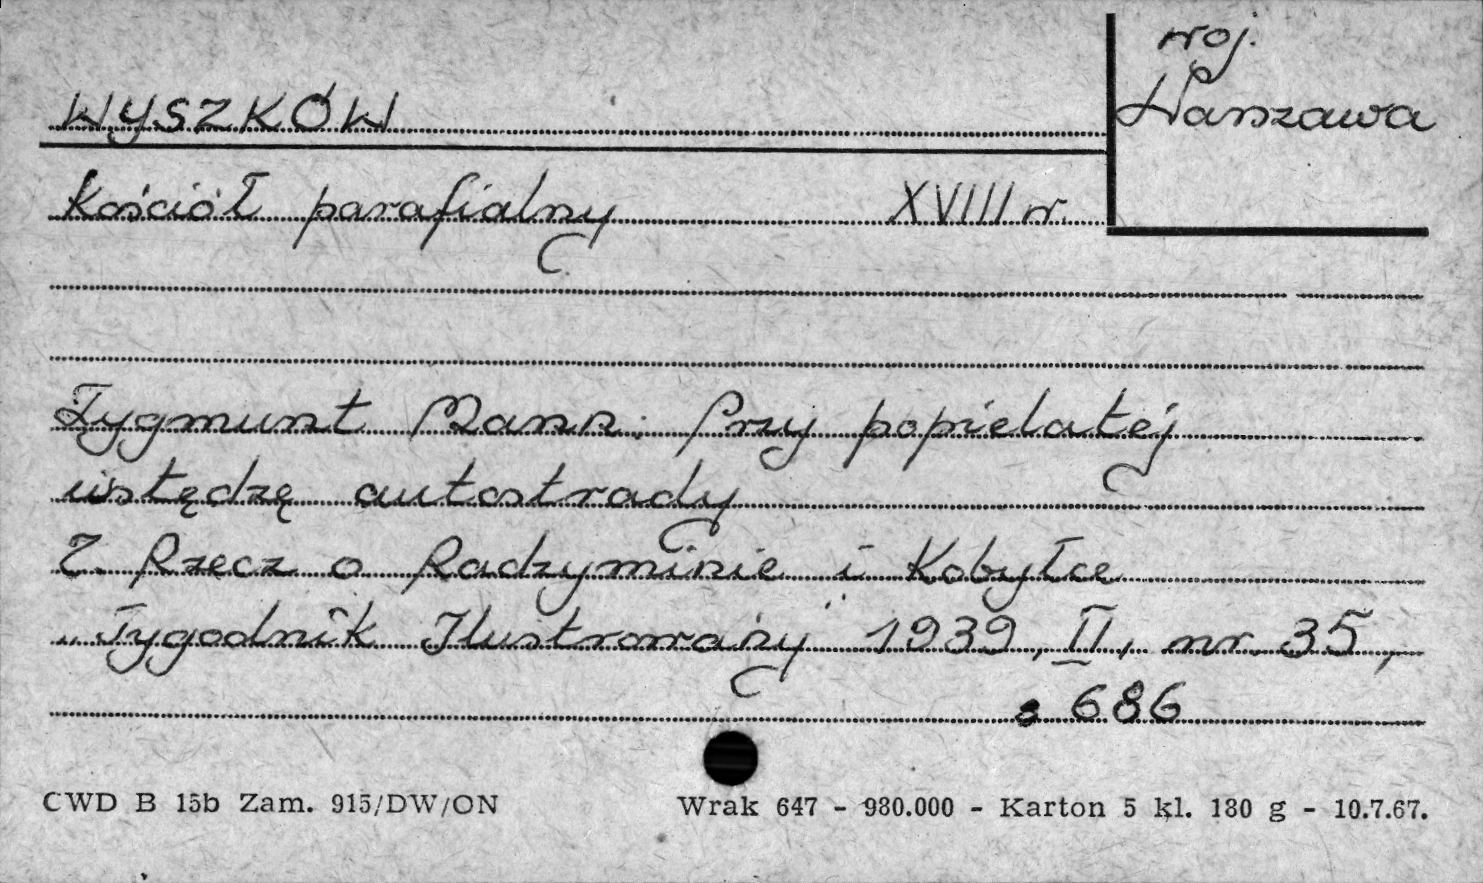 woj.
Warszawa
WYSZKÓW
Kościół parafialny XVIII w.
Zygmunt Mann: Przy popielatej
wstędzę autostrady
2. Rzecz o Radzyminie i Kobyłce
„Tygodnik Ilustrowany" 1939, II, nr. 35,
s 686
CWD B 15b Zam. 915/DW/ON Wrak 647 - 980.000 - Karton 5 kl. 180 g - 10.7.67.